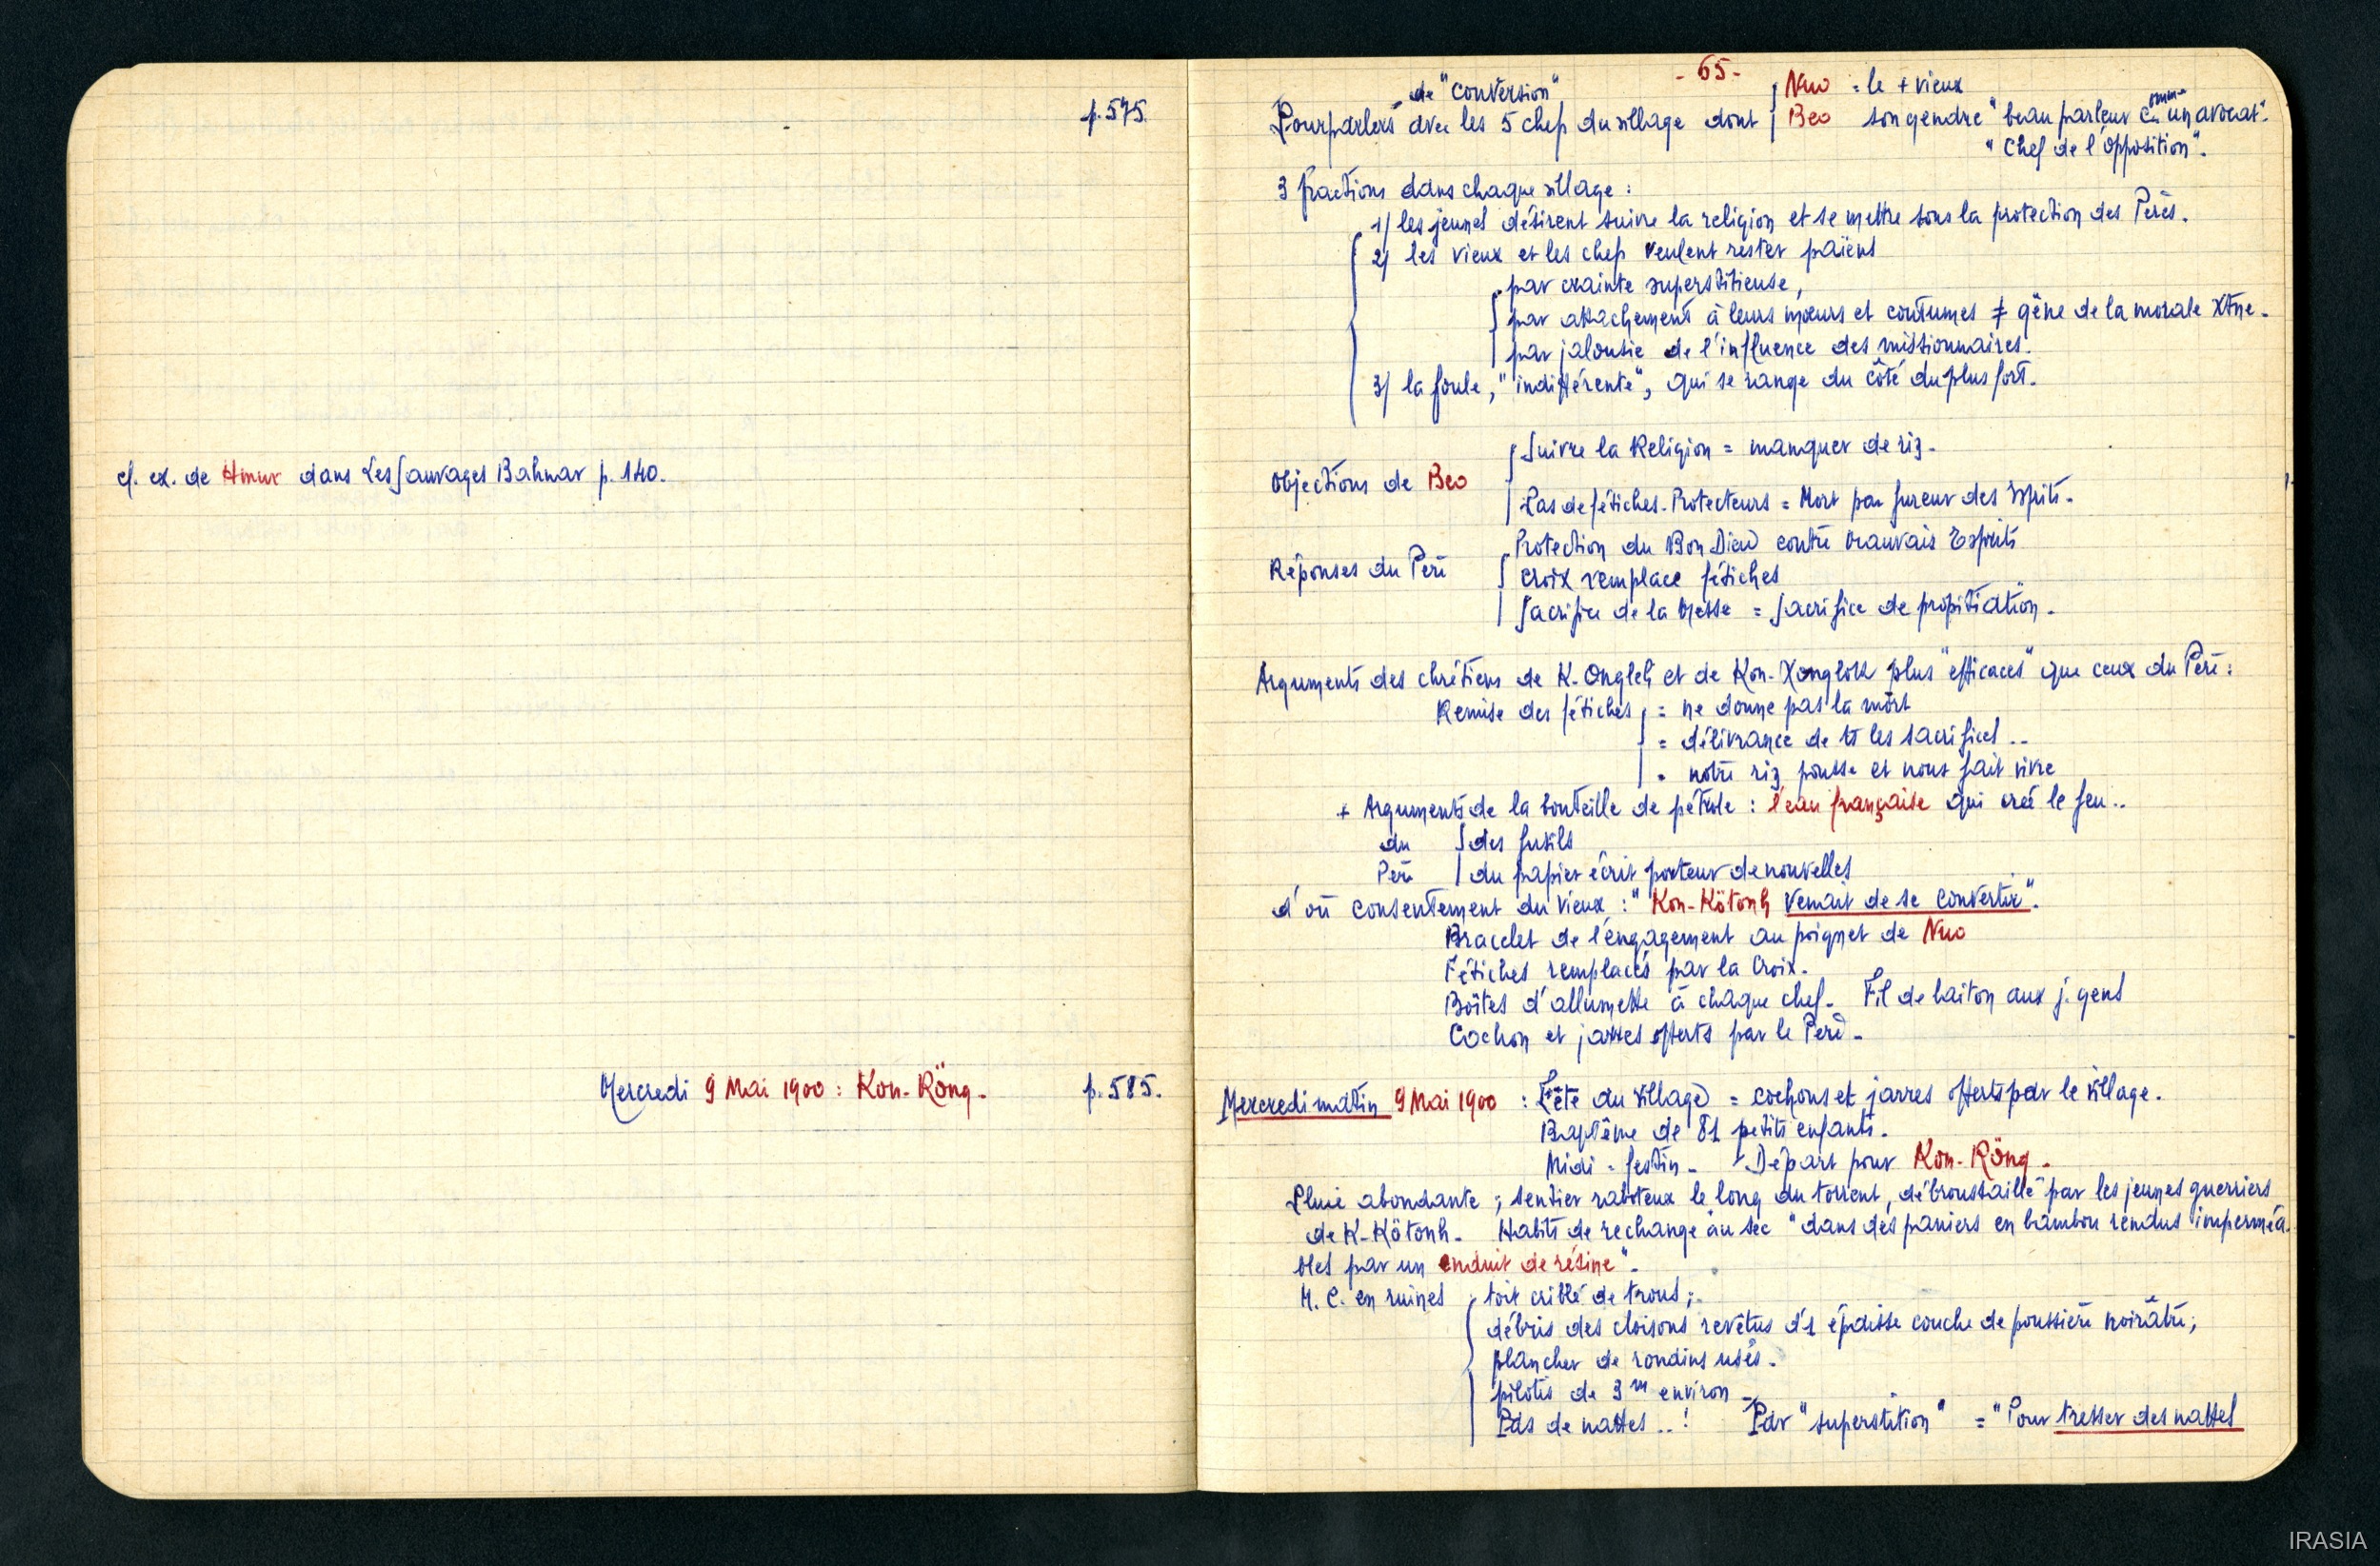 p. 575.
cf. ex. de Hmur dans Les Sauvages Bahnar p. 140.
Mercredi 9 Mai 1900 : Kon-Röng. p. 585.
- 65 -
de "conversion" Nuo = le + vieux
Pourparlers avec les 5 chefs du village dont Beo son gendre "beau parleur comme un avocat".
"Chef de l'Opposition".
3 fractions dans chaque village :
1) les jeunes désirent suivre la religion et se mettre sous la protection des Pères.
2) les vieux et les chefs veulent rester païens
par crainte superstitieuse,
par attachement à leurs mœurs et coutumes ≠ gêne de la morale Xtne.
par jalousie de l'influence des missionnaires.
3) la foule, "indifférente", qui se range du côté du plus fort.
Suivre la Religion = manquer de riz.
Objections de Beo
Pas de fétiches-Protecteurs = Mort par fureur des Esprits.
Protection du Bon Dieu contre Mauvais Esprits
Réponses du Père Croix remplace fétiches
Sacrifice de la Messe = Sacrifice de propitiation.
Arguments des chrétiens de K. Ongleh et de Kon-Xonglok plus "efficaces" que ceux du Père :
Remise des fétiches = ne donne pas la mort
= délivrance de ts les sacrifices..
= notre riz pousse et nous fait vivre
+ Arguments de la bouteille de pétrole : l'eau française qui crée le feu..
du des fusils
Père du papier écrit porteur de nouvelles
d'où consentement du vieux : "Kon-Kötonh venait de se convertir".
Bracelet de l'engagement au poignet de Nuo
Fétiches remplacés par la Croix.
Boîtes d'allumette à chaque chef. Fil de laiton aux j. gens
Cochon et jarres offerts par le Père.
Mercredi matin 9 Mai 1900 : Fête du village = cochons et jarres offerts par le village.
Baptême de 81 petits enfants.
Midi = festin. Départ pour Kon-Röng.
Pluie abondante ; sentier raboteux le long du torrent, débroussaillé par les jeunes guerriers
de K-Kötonh. Habits de rechange au sec "dans des paniers en bambou rendus imperméa-
bles par un enduit de résine".
M. C. en ruines toit criblé de trous ;
débris des cloisons revêtus d'1 épaisse couche de poussière noirâtre ;
plancher de rondins usés.
pilotis de 3m environ -
Pas de nattes..! Par "superstition" = "Pour tresser des nattes
IRASIA